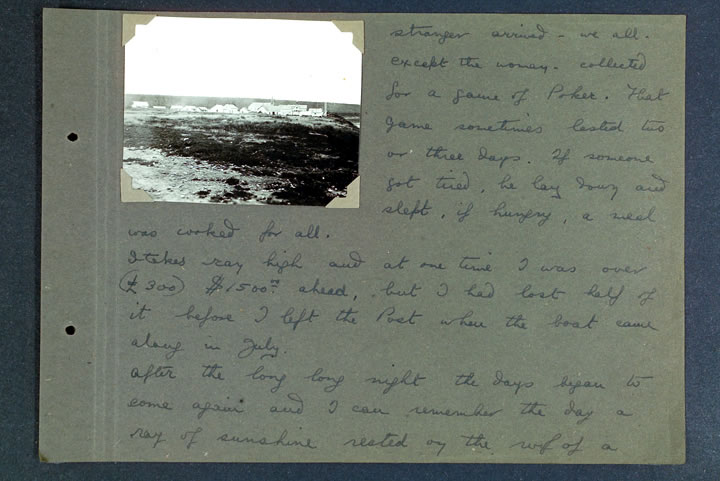 stranger arrived - we all -
except the woman - collected
for a game of Poker. That
game sometimes lasted two
or three days. If someone
got tired, he lay down and
slept, if hungry, a meal
was cooked for all.
Stakes ray high and at one time I was over
(£300) $1500.00 ahead, but I had lost half of
it before I left the Post when the boat came
along in July.
After the long long night the days began to
come again and I can remember the day a
ray of sunshine rested on the roof of a